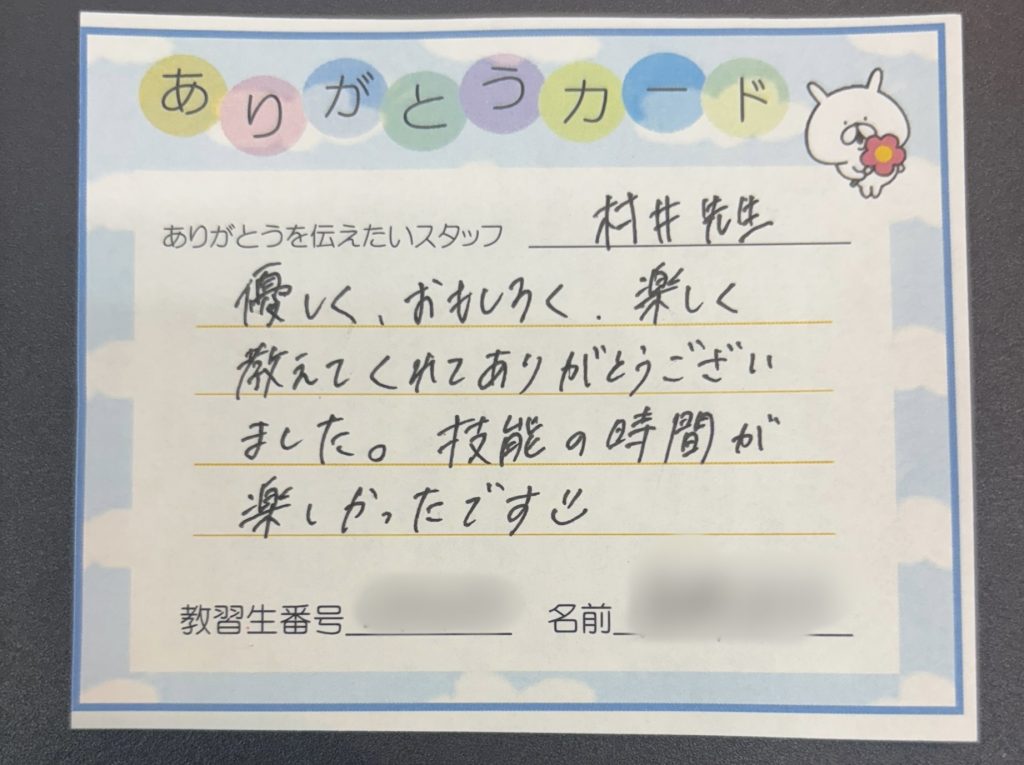 ありがとうカード
ありがとうを伝えたいスタッフ 村井先生
優しく、おもしろく、楽しく
教えてくれてありがとうござい
ました。技能の時間が
楽しかったです
教習生番号 名前